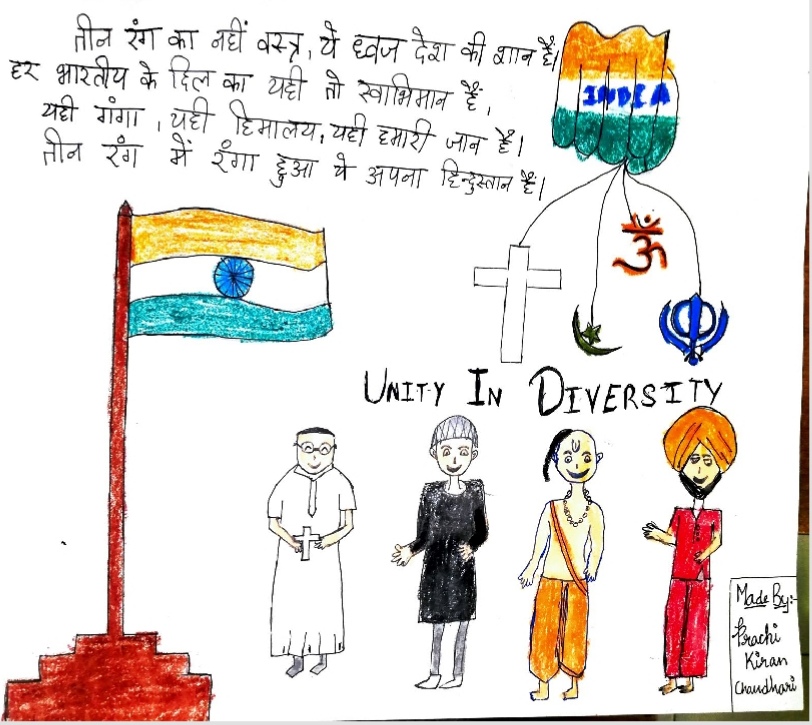 तीन रंग का नहीं वस्त्र, ये ध्वज देश की शान है।
हर भारतीय के दिल का यही तो स्वाभिमान है,
यही गंगा, यही हिमालय, यही हमारी जान है।
तीन रंग में रंगा हुआ ये अपना हिन्दुस्तान है।
INDIA
ॐ
UNITY IN DIVERSITY
Made By:-
Prachi
Kiran
Chaudhari